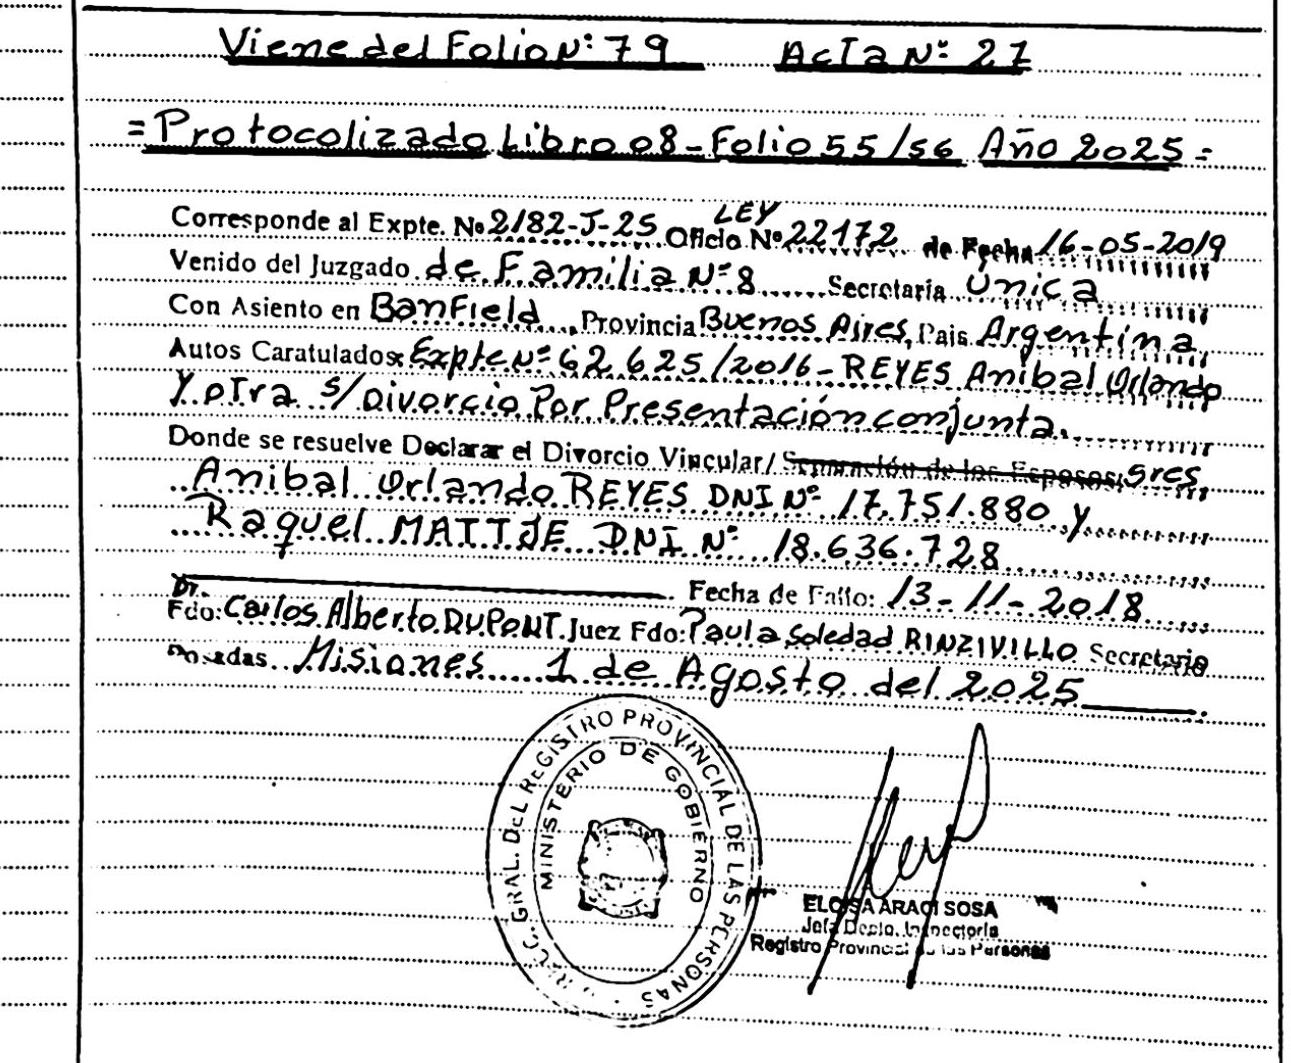 Viene del Folio Nº 79 Acta Nº 27
=Protocolizado Libro 08-Folio 55/56 Año 2025=
LEY
Corresponde al Expte. Nº 2182-J-25 Oficio Nº 22172 de Fecha 16-05-2019
Venido del Juzgado de Familia Nº 8 Secretaría Única
Con Asiento en Banfield, Provincia Buenos Aires, Pais Argentina,
Autos Caratulados: Expte Nº 62.625/2016-REYES Anibal Orlando
Y otra s/Divorcio Por Presentación conjunta.
Donde se resuelve Declarar el Divorcio Vincular/ Separación de los Esposos: Sres.
Anibal Orlando REYES DNI Nº 17.751.880 y
Raquel DNI Nº 18.636.728
Fecha de Fallo: 13-11-2018
Dr.
Fdo: Carlos Alberto DUPONT Juez Fdo: Paula Soledad RINZIVILLO Secretario
Posadas Misiones 1 de Agosto del 2025
GRAL. DEL REGISTRO PROVINCIAL DE LAS PERSONAS
MINISTERIO DE GOBIERNO
ELOISA ARACI SOSA
Jefa Depto. Inspectoría
Registro Provincial de las Personas